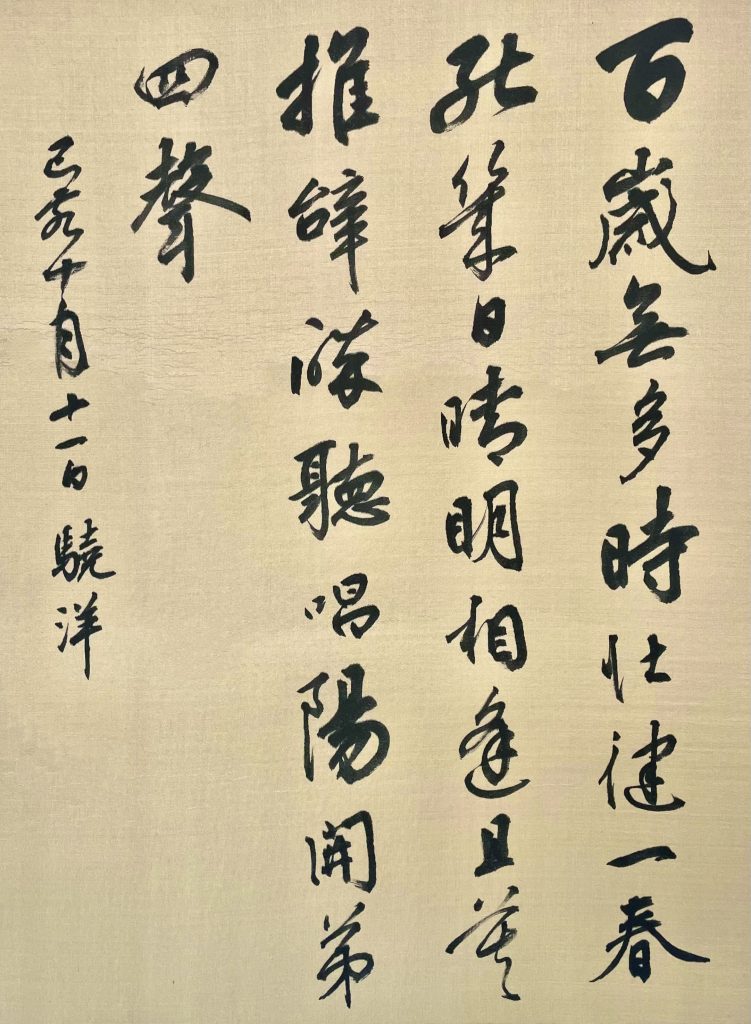 百歲無多時壯健一春
能幾日晴明相逢且莫
推辭醉聽唱陽關第
四聲
己亥十月十一日 驍洋